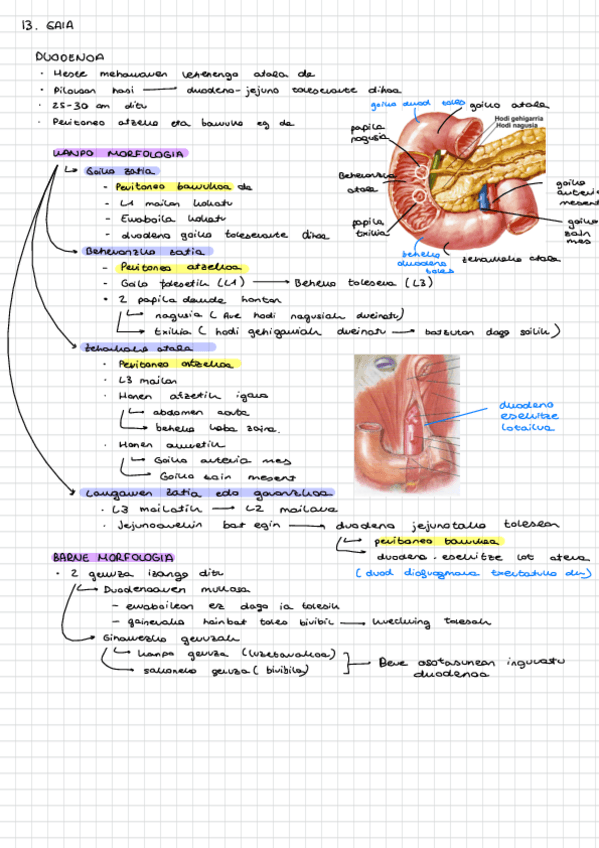 13. GAIA
DUODENOA
· Heste meharraren lehenengo atala da
· Pilotoan hasi → duodeno-jejuno tolesturate dihoa
· 25-30 cm ditu
· Peritoneo atzeko eta barruko ez da
KANPO MORFOLOGIA
Goiko zatia
- Peritoneo barrukoa da
- L1 mailan kokatu
- Erraboila kokatu
- duodeno goiko tolesturate dihoa
Beheranzko zatia
- Peritoneo atzekoa
- Goiko tolesetik (L1) → Beheko tolesera (L3)
• 2 papila daude hontan
nagusia (Ave hodi nagusiak dreinatu)
txikia (hodi gehigarriak dreinatu → batzutan dago soilik)
Zeharkako atala
· Peritoneo atzekoa
· L3 mailan
· Honen atzetik igaro
abdomen aorta
beheko kaba zaina.
· Honen aurretik
Goiko arteria mes
Goiko zain mesent
Laugarren zatia edo goranzkoa
· L3 mailatik → L2 mailara
· Jejunoarekin bat egin → duodeno jejunotako tolesean
peritoneo barrukoa
duodeno-esekitze lot atera
(duod diafragmara txertatuko du)
BARNE MORFOLOGIA
· 2 geruza izango ditu
Duodenoaren mukosa
- erraboilean ez dago ia tolesik
- gainerako hainbat toles bivibil → kerckring tolesak
Giharrezko geruzak
kanpo geruza (luzetarakoa)
sakoneko geruza (bivibila)
Bere osotasunean inguratu
duodenoa
goiko duod toles
goiko atala
papila
nagusia
Hodi gehigarria
Hodi nagusia
Beheranzko
atala
papila
txikia
beheko
duodeno
toles
zeharkako atala
goiko
arteria
mesent
goiko
zain
mes
duodeno
esekitze
lotailua